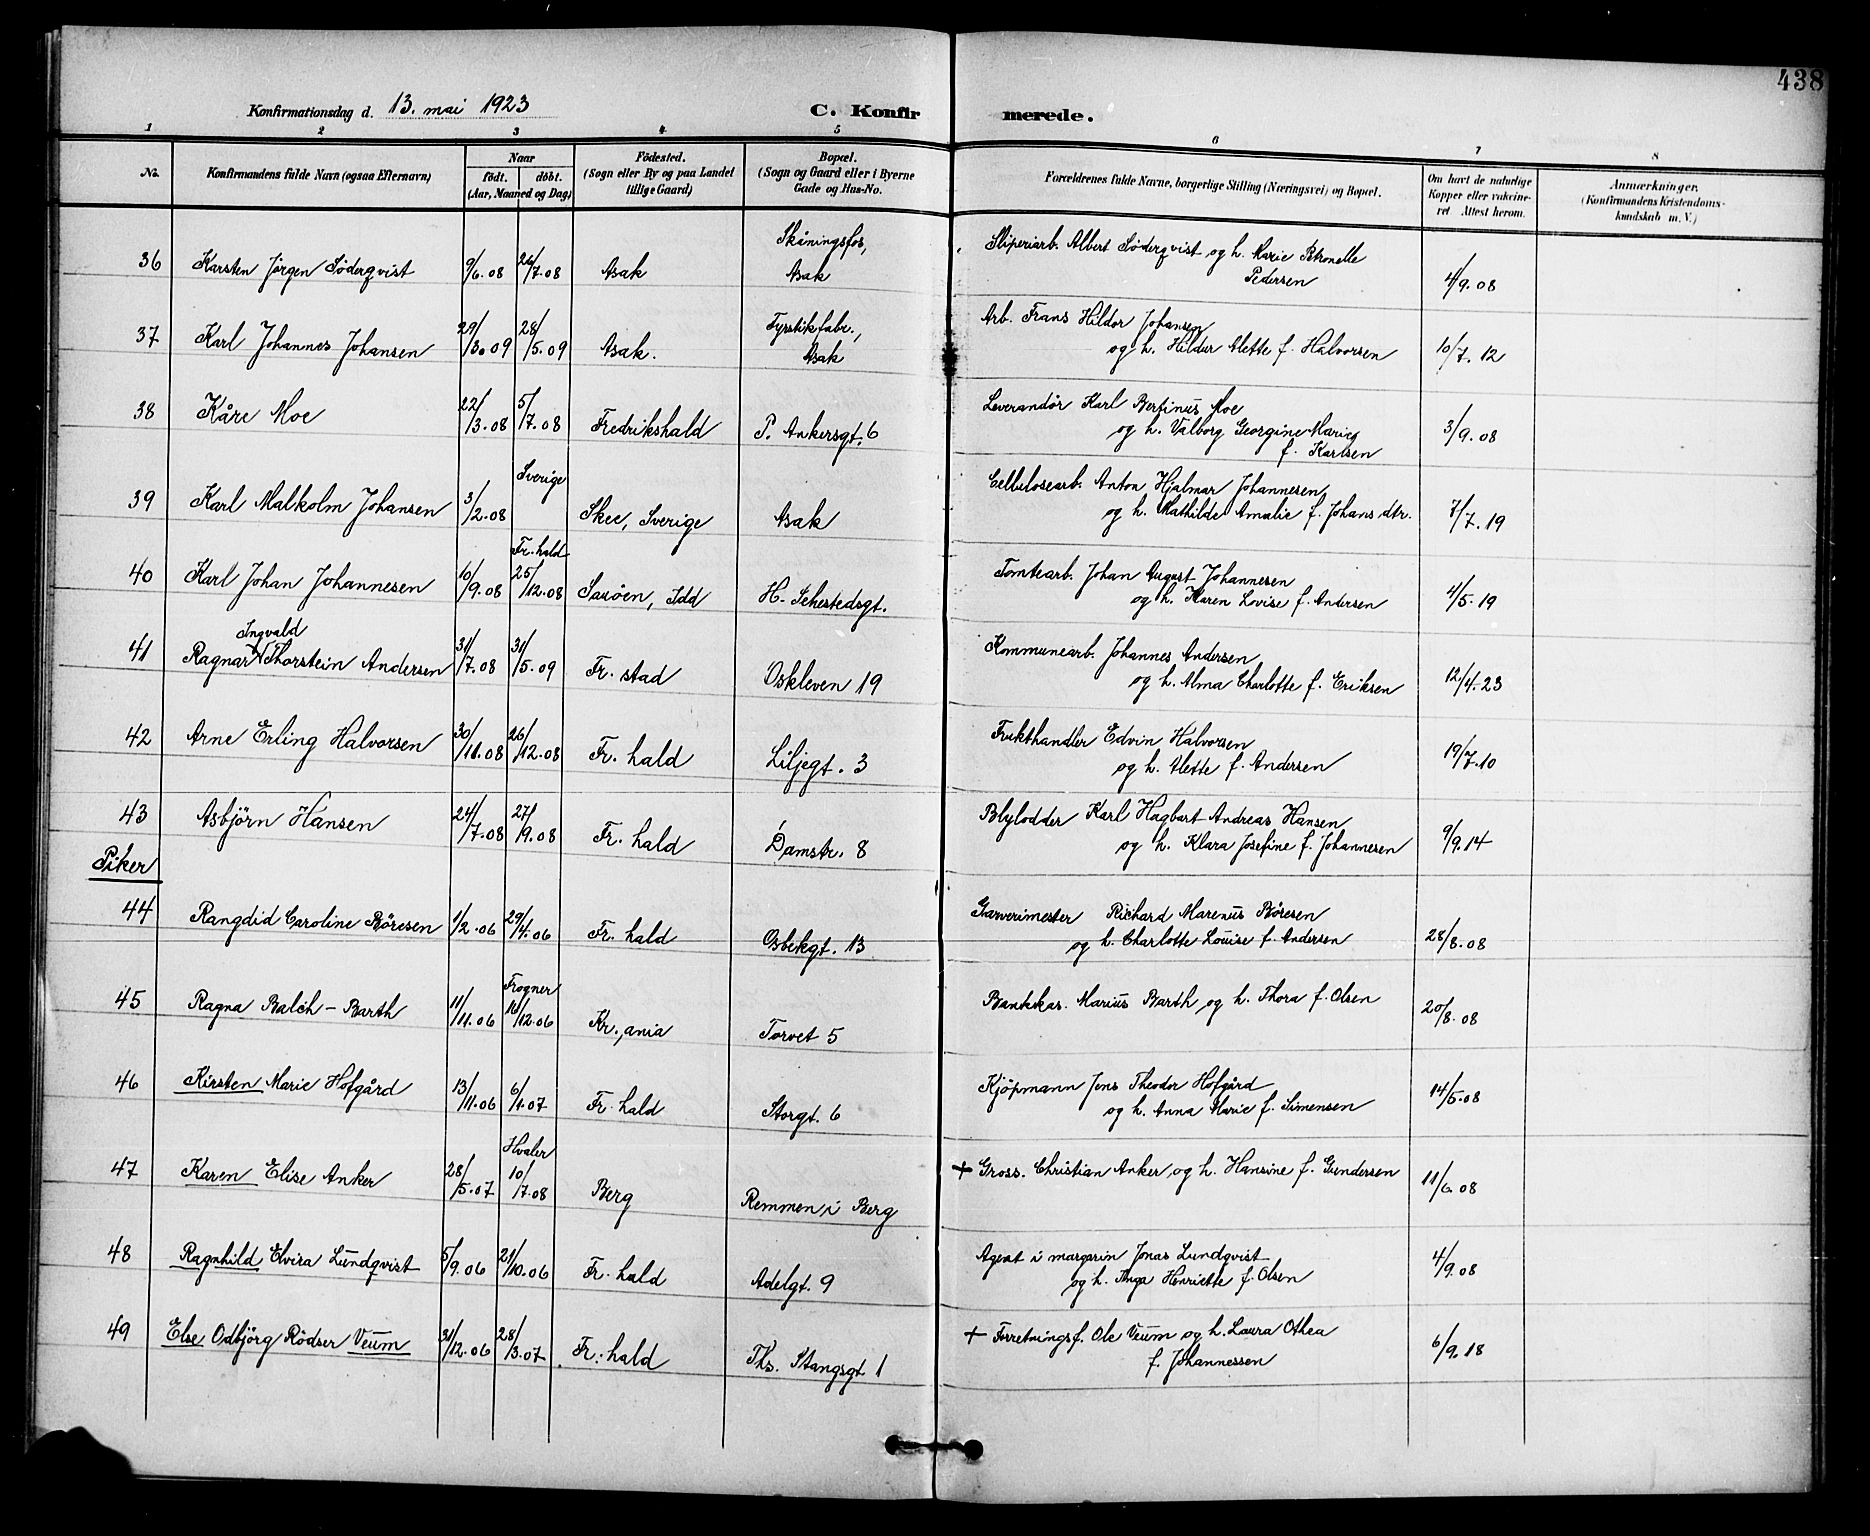 438
Konfirmationsdag d. 13. mai 1923
C. Konfirmerede.
1 2 3 4 5 6 7 8
No.
Konfirmandens fulde Navn (ogsaa Efternavn)
Naar
født. døbt.
(Aar, Maaned og Dag)
Födested.
(Sogn eller By og paa Landet
tillige Gaard)
Bopæl.
(Sogn og Gaard eller i Byerne
Gade og Hus-No.
Forældrenes fulde Navne, borgerlige Stilling (Næringsvei) og Bopæl.
Om havt de naturlige
Kopper eller vakcine-
ret Attest herom.
Anmærkninger.
(Konfirmandens Kristendoms-
kundskab m. V.)
36 Karsten Jørgen Søderqvist 9/6.08 26/7.08 Asak Skåningsfos, Asak Sliperiarb. Albert Søderqvist og h. Marie Petronelle
Pedersen 4/9.08
37 Karl Johannes Johansen 29/3.09 28/5.09 Asak. Fyrstikfabr., Asak Arb. Frans Hildor Johansen
og h. Hildur Alette f. Halvorsen 10/7.12
38 Kåre Moe 22/3.08 5/7.08 Fredrikshald P. Ankersgt. 6 Leverandør Karl Bertinus Moe
og h. Valborg Georgine Marie
f. Karlsen 3/9.08
39 Karl Malkolm Johansen 3/2.08 Sverige Skee, Sverige Asak Cellulosearb. Anton Hjalmar Johannesen
og h. Mathilde Amalie f. Johans dtr. 7/7.19
40 Karl Johan Johannesen 10/9.08 Fr. hald 25/12.08 Sauøen, Idd H. Sehestedsgt. Tomtearb. Johan August Johannesen
og h. Maren Lovise f. Andersen 4/5.19
41 Ragnar Ingvald Thorstein Andersen 31/7.08 31/5.09 Fr. stad Oskleven 19 Kommunearb. Johannes Andersen
og h. Alma Charlotte f. Eriksen 12/4.23
42 Arne Erling Halvorsen 30/11.08 26/12.08 Fr. hald Liljegt. 3 Frukthandler Edvin Halvorsen
og h. Alette f. Andersen 19/7.10
43 Asbjörn Hansen 24/7.08 27/9.08 Fr. hald Damstr. 8 Blylodder Karl Hagbart Andreas Hansen
og h. Klara Josefine f. Johannesen 9/9.14
Piker
44 Rangdid Caroline Böresen 1/2.06 29/4.06 Fr. hald Osbekgt. 13 Garverimester Richard Marenus Børesen
og h. Charlotte Louise f. Andersen 28/8.08
45 Ragna Balch-Barth 11/11.06 Frogner 16/12.06 Kr.,ania Torvet 5 Bankkas. Marius Barth og h. Thora f. Olsen 20/8.08
46 Kirsten Marie Hofgård 13/11.06 6/1.07 Fr. hald Storgt. 6 Kjöpmann Jens Theodor Hofgård
og h. Anna Marie f. Simensen 14/5.08
47 Karen Elise Anker 28/5.07 Hvaler 10/7.08 Berg Remmen i Berg + Gross. Christian Anker og h. Hansine f. Gundersen 11/6.08
48 Ragnhild Elvira Lundqvist 5/9.06 21/10.06 Fr. hald Adelgt. 9 Agent i margarin Jonas Lundqvist
og h. Inga Henriette f. Olsen 4/9.08
49 Else Odbjörg Rödser Veum 31/12.06 28/3.07 Fr. hald Ths. Stangsgt. 1 + Forretningsf. Ole Veum og h. Laura Othea
f. Johannessen 6/9.18